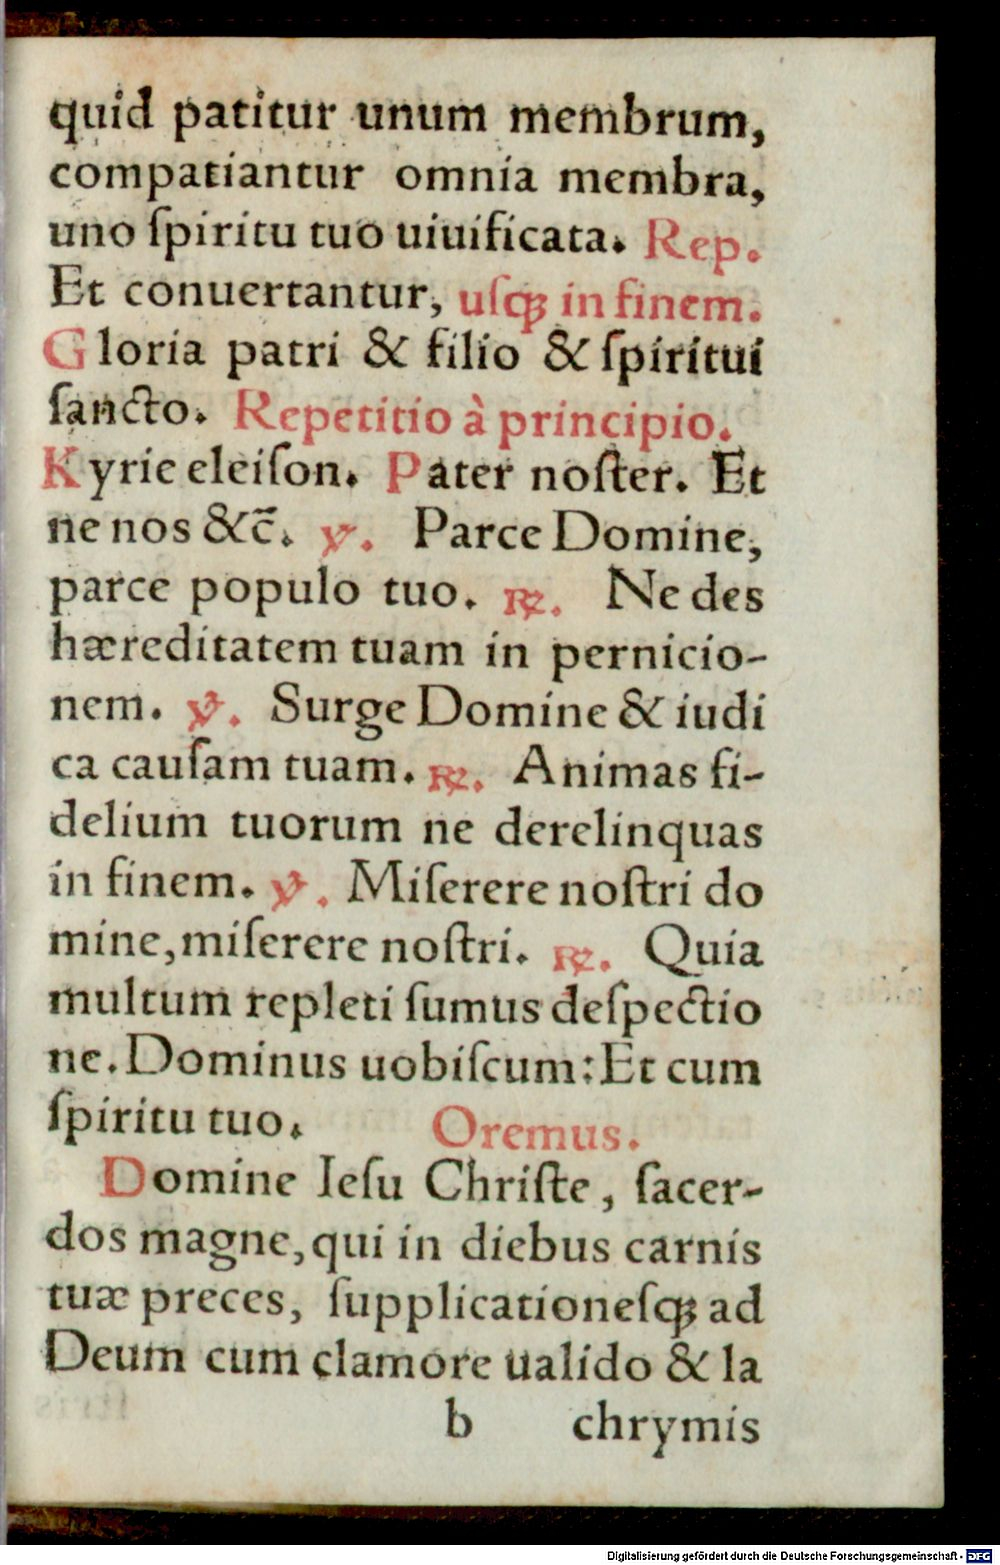 quid patitur unum membrum,
compatiantur omnia membra,
uno ſpiritu tuo uiuificata. Rep.
Et conuertantur, uſqꝫ in finem.
Gloria patri & filio & ſpiritui
ſancto. Repetitio à principio.
Kyrie eleiſon. Pater noſter. Et
ne nos &c̄. ℣. Parce Domine,
parce populo tuo. ℟. Ne des
hæreditatem tuam in pernicio-
nem. ℣. Surge Domine & iudi
ca cauſam tuam. ℟. Animas fi-
delium tuorum ne derelinquas
in finem. ℣. Miſerere noſtri do
mine, miſerere noſtri. ℟. Quia
multum repleti ſumus deſpectio
ne. Dominus uobiſcum: Et cum
ſpiritu tuo. Oremus.
Domine Ieſu Chriſte, ſacer-
dos magne, qui in diebus carnis
tuæ preces, ſupplicationeſqꝫ ad
Deum cum clamore ualido & la
b chrymis
Digitalisierung gefördert durch die Deutsche Forschungsgemeinschaft - DFG